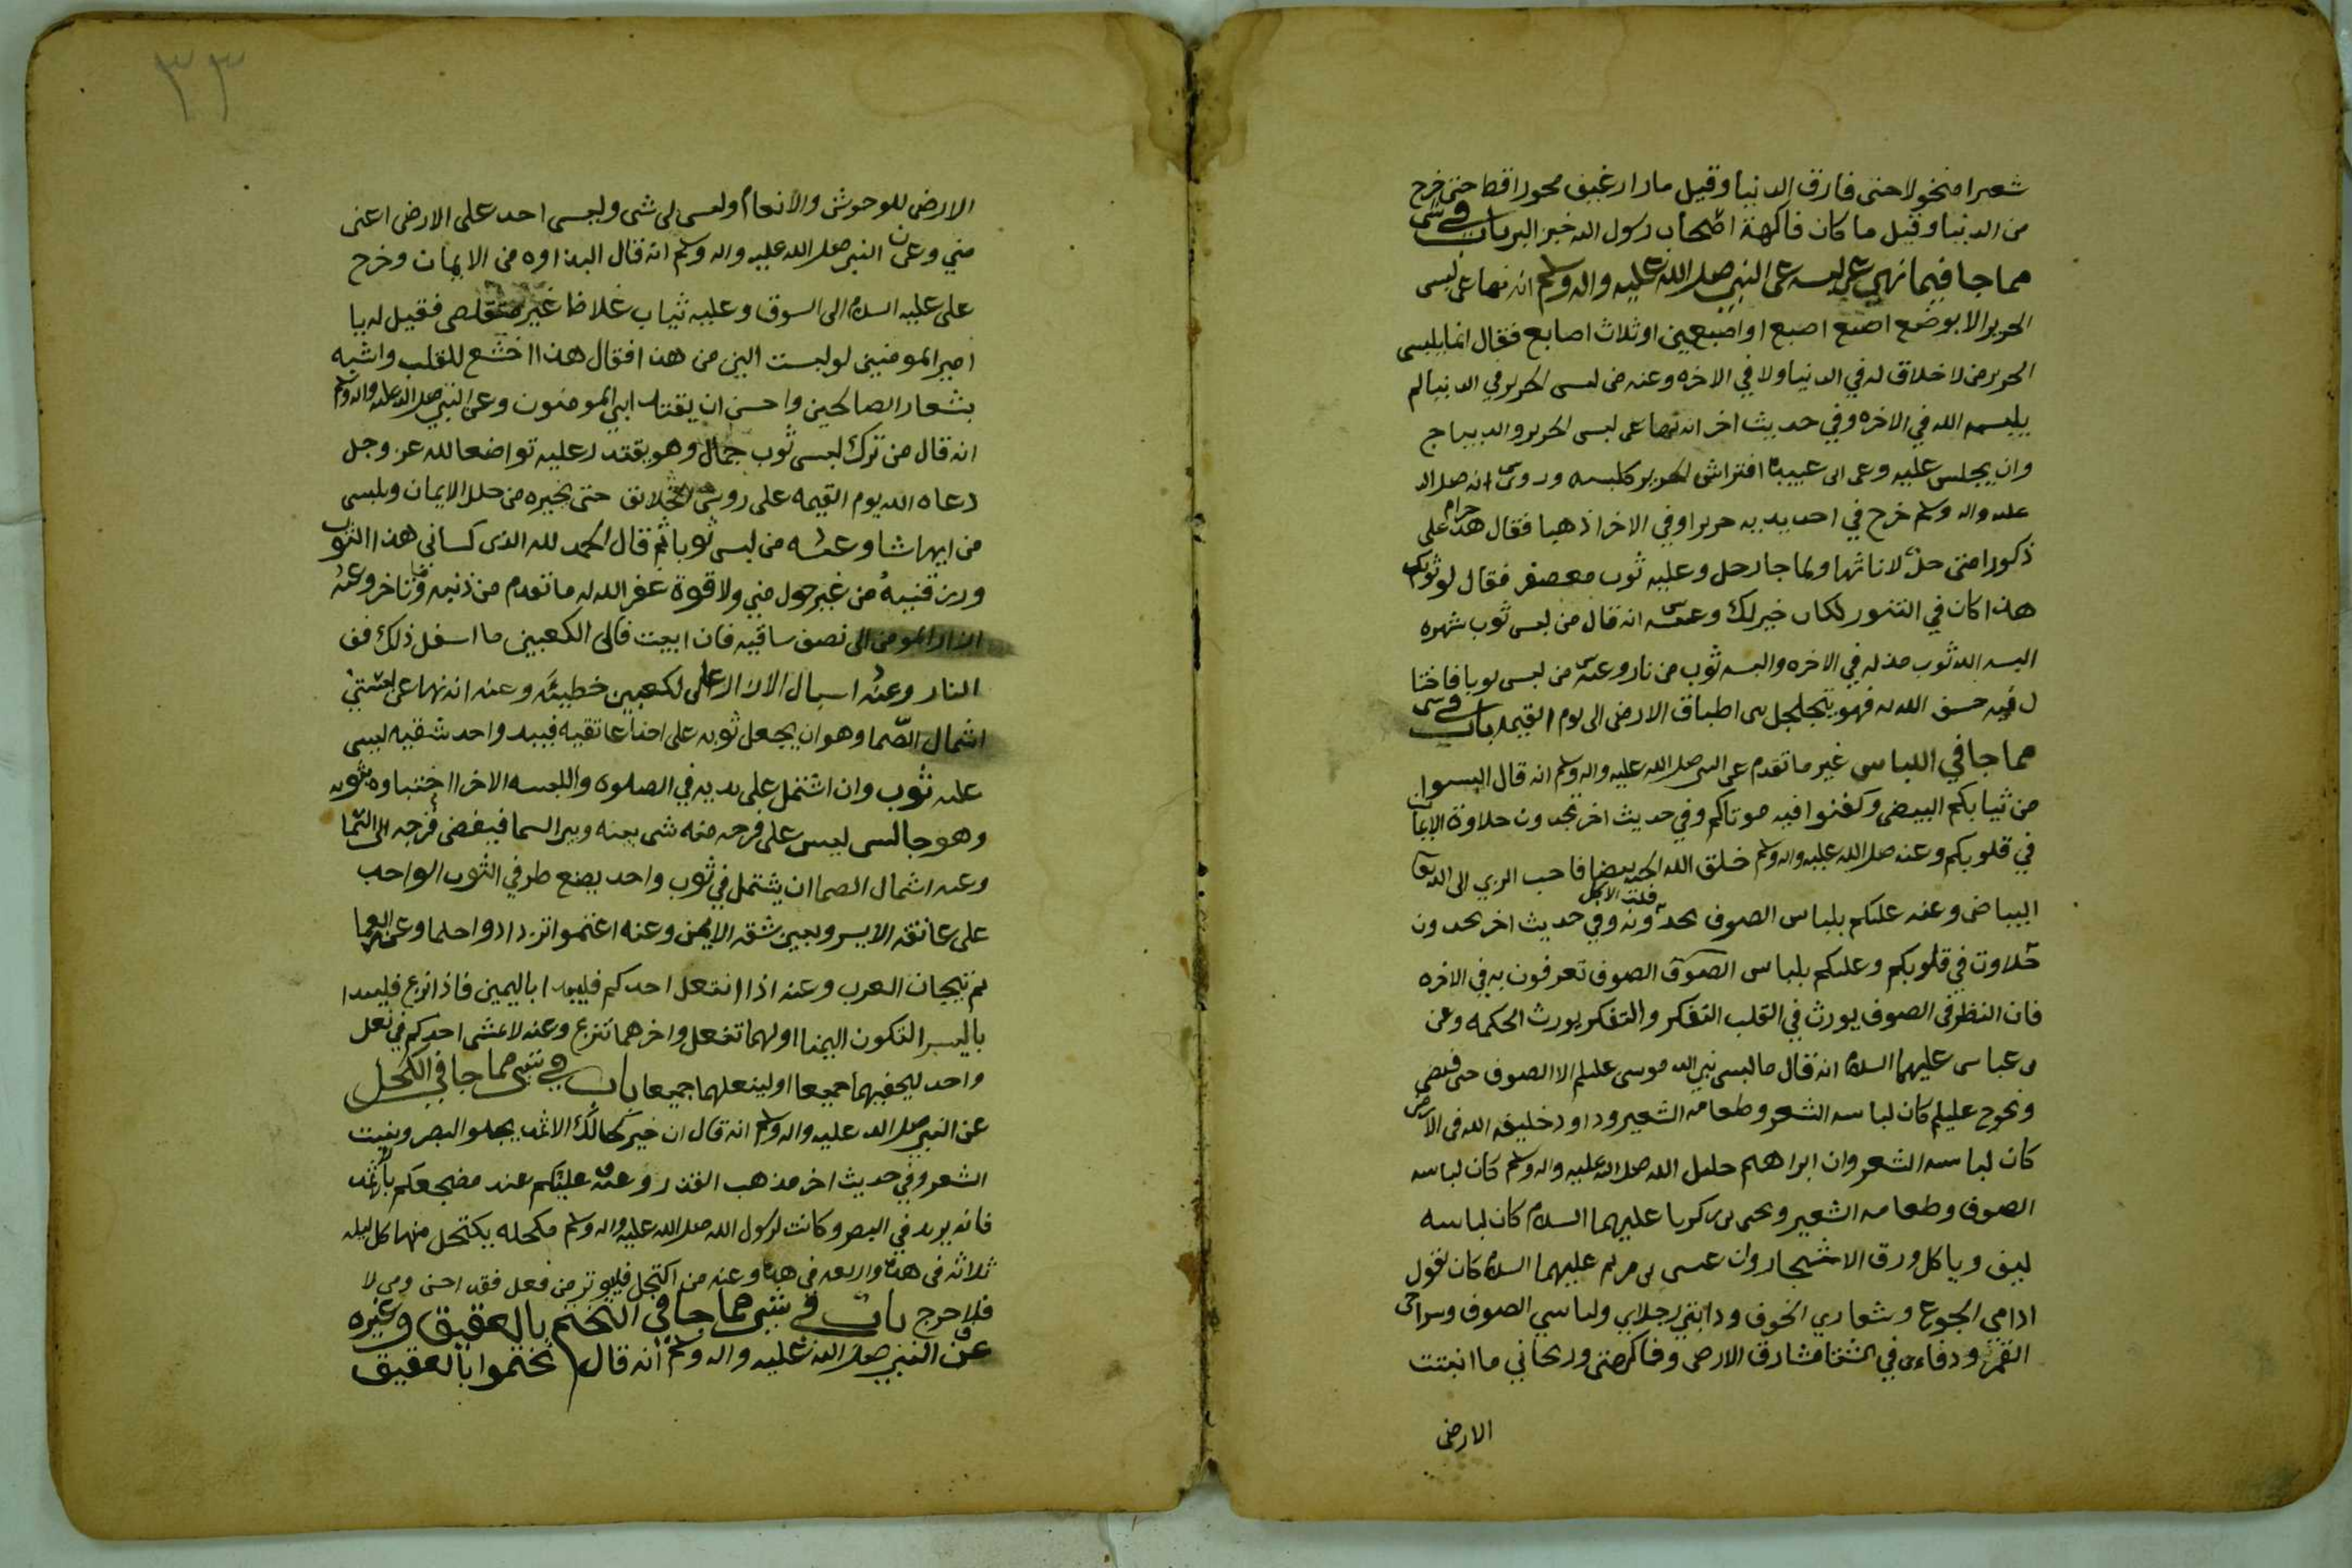 شعيرا منخولا حتى فارق الدنيا وقيل ما رأى رغيف محورا قط حتى خرج
من الدنيا وقيل ما كان فاكهة اصحاب رسول الله خبز البر باب في شي
مما جا فيما نهي عن لبسه عن النبي صلى الله عليه واله وسلم انه نهى عن لبس
الحرير الا بوضع اصبع اصبع او اصبعين او ثلاث اصابع فقال انما يلبس
الحرير من لا خلاق له في الدنيا ولا في الاخره وعنه من لبس الحرير في الدنيا لم
يلبسه الله في الاخره وفي حديث اخر انه نها عن لبس الحرير والديباج
وان يجلس عليه وعن ابي عبيده افتراش الحرير كلبسه وروي انه صلى الله
عليه واله وسلم خرج في احد يديه حريرا وفي الاخر اذهبا فقال هذا حرام على
ذكور امتي حل لاناثها ولما جا رجل وعليه ثوب معصفر فقال لو ثوبك
هذا كان في التنور لكان خير لك وعنه انه قال من لبس ثوب شهره
البسه الله ثوب مذله في الاخره والبسه ثوب من نار وعنه من لبس ثوبا فاختا
ل فيه خسف الله به فهو يتجلجل بين اطباق الارض الى يوم القيمه باب في شي
مما جا في اللباس غير ما تقدم عن النبي صلى الله عليه واله وسلم انه قال البسوا
من ثيابكم البيض وكفنوا فيه موتاكم وفي حديث اخر تجدون حلاوة الايمان
في قلوبكم وعنه صلى الله عليه واله وسلم خلق الله الجنه بيضا فاحب الزي الى الله تعا
البياض وعنه عليكم بلباس الصوف تجدون قلت الاكل وفي حديث اخر تجدون
حلاوت في قلوبكم وعليكم بلباس الصوف الصوف تعرفون به في الاخره
فان النظر في الصوف يورث في القلب التفكر والتفكر يورث الحكمه وعن
بن عباس عليهما السلام انه قال ما لبس نبي الله موسى عليلم الا الصوف حتى قبض
ونوح عليلم كان لباسه الشعر وطعامه الشعير وداود خليفه الله في الارض
كان لباسه الشعر وان ابراهيم خليل الله صلى الله عليه واله وسلم كان لباسه
الصوف وطعامه الشعير ويحيى بن زكريا عليهما السلام كان لباسه
ليف وياكل ورق الاشجار وان عيسى بن مريم عليهما السلام كان يقول
ادامي الجوع وشعاري الخوف ودابتي رجلاي ولباسي الصوف وسراجي
القمر ودفاءي في الشتا مشارق الارض وفاكهتي وريحاني ما انبتت
الارض
٣٣
الارض للوحوش والانعام وليس لي شي وليس احد على الارض اغنى
مني وعن النبي صلى الله عليه واله وسلم انه قال البذاوه من الايمان وخرج
علي عليه السلام الى السوق وعليه ثياب غلاظ غير فقيل له يا
امير المومنين لو لبست الين من هذا فقال هذا اخشع للقلب واشبه
بشعار الصالحين واحسن ان يقتدي المومنون وعن النبي صلى الله عليه واله وسلم
انه قال من ترك لبس ثوب جمال وهو يقتدر عليه تواضعا لله عز وجل
دعاه الله يوم القيمه على روس الخلائق حتى يخيره من حلل الايمان ويلبس
من ايها شا وعنه من لبس ثوبا ثم قال الحمد لله الذي كساني هذا الثوب
ورزقنيه من غير حول مني ولا قوة غفر الله له ما تقدم من ذنبه وما تاخر وعنه
ازار المومن الى نصف ساقيه فان ابيت فالى الكعبين ما اسفل ذلك ففي
النار وعنه اسبال الازار على الكعبين خطيئه وعنه انه نها عن لبستين
اشمال الصما وهو ان يجعل ثوبه على احدا عاتقيه فيبد واحد شقيه ليس
عليه ثوب وان اشتمل على يديه في الصلوه واللبسه الاخر احتباوه بثوبه
وهو جالس ليس على فرجه منه شي بينه وبين السما فيفضي فرجه الى السما
وعنه اشمال الصما ان يشتمل في ثوب واحد يضع طرفي الثوب الواحد
على عاتقه الايسر وبين شقه الايمن وعنه اعتموا تزدادوا حلما وعن العما
يم تيجان العرب وعنه اذا انتعل احدكم فليبدا باليمين فاذا نزع فليبدا
باليسر التكون اليمنا اولهما تنعل واخرهما تنزع وعنه لا يمشي احدكم في نعل
واحد ليحفيهما جميعا او لينعلهما جميعا باب في شي مما جا في الكحل
عن النبي صلى الله عليه واله وسلم انه قال ان خير كحالك الاثمد يجلو البصر وينبت
الشعر وفي حديث اخر مذهب القذر وعنه عليكم عند مضجعكم بالاثمد
فانه يزيد في البصر وكانت لرسول الله صلى الله عليه واله وسلم مكحله يكتحل منها كل ليله
ثلاثه في هذه واربعه في هذه وعنه من اكتحل فليوتر من فعل فقد احسن ومن لا
فلا حرج باب في شي مما جا في التختم بالعقيق وغيره
عن النبي صلى الله عليه واله وسلم انه قال تختموا بالعقيق